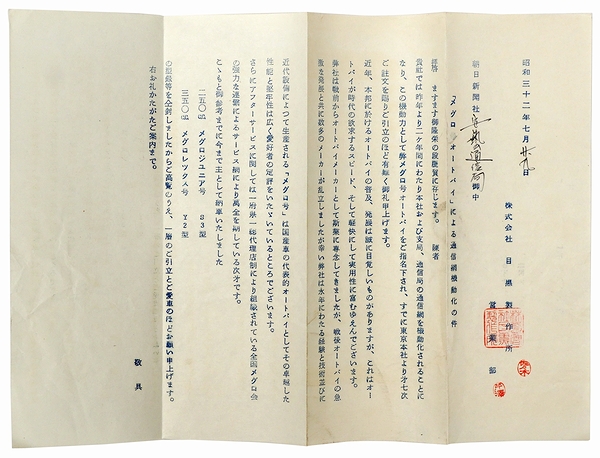 昭和三十二年七月廿九日
株式会社 目黒製作所
営業部
朝日新聞社 通信局 御中
「メグロ オートバイ」による通信網機動化の件
拝啓 ますます御隆栄の段慶賀に存じます。 陳者
貴社では昨年より二ケ年間にわたり本社および支局、通信局の通信網を機動化されることに
なり、この機動力として弊メグロ号オートバイをご指名下され、すでに東京本社より才七次
ご註文を賜りご引立のほど有難く御礼申上げます。
近年、本邦に於けるオートバイの普及、発展は誠に目覚しいものがありますが、これはオー
トバイが時代の欲求するスピード、そして軽快にして実用性に富むゆえんでございます。
弊社は戦前からオートバイメーカーとして斯業に専念してきましたが、戦後オートバイの急
激な発展と共に数多のメーカーが乱立しましたが幸い弊社は永年にわたる経験と技術並びに
近代設備によつて生産される「メグロ号」は国産車の代表的オートバイとしてその卓越した
性能と堅牢性は広く愛好者の定評をいたゞいているところでございます。
さらにアフターサービスに関しては一府県一総代理店制により組織されている全国メグロ会
の強力な運営によるサービス網により万全を期している次才です。
こゝもと御参考までに今まで主として納車いたしました
二五〇cc メグロジユニア号 S3型
三五〇cc メグロレツクス号 Y2型
の型録等を仝封しましたからご高覧のうえ、一層のご引立とご愛車のほどお願い申上げます。
右お礼かたがたご案内まで。
敬具